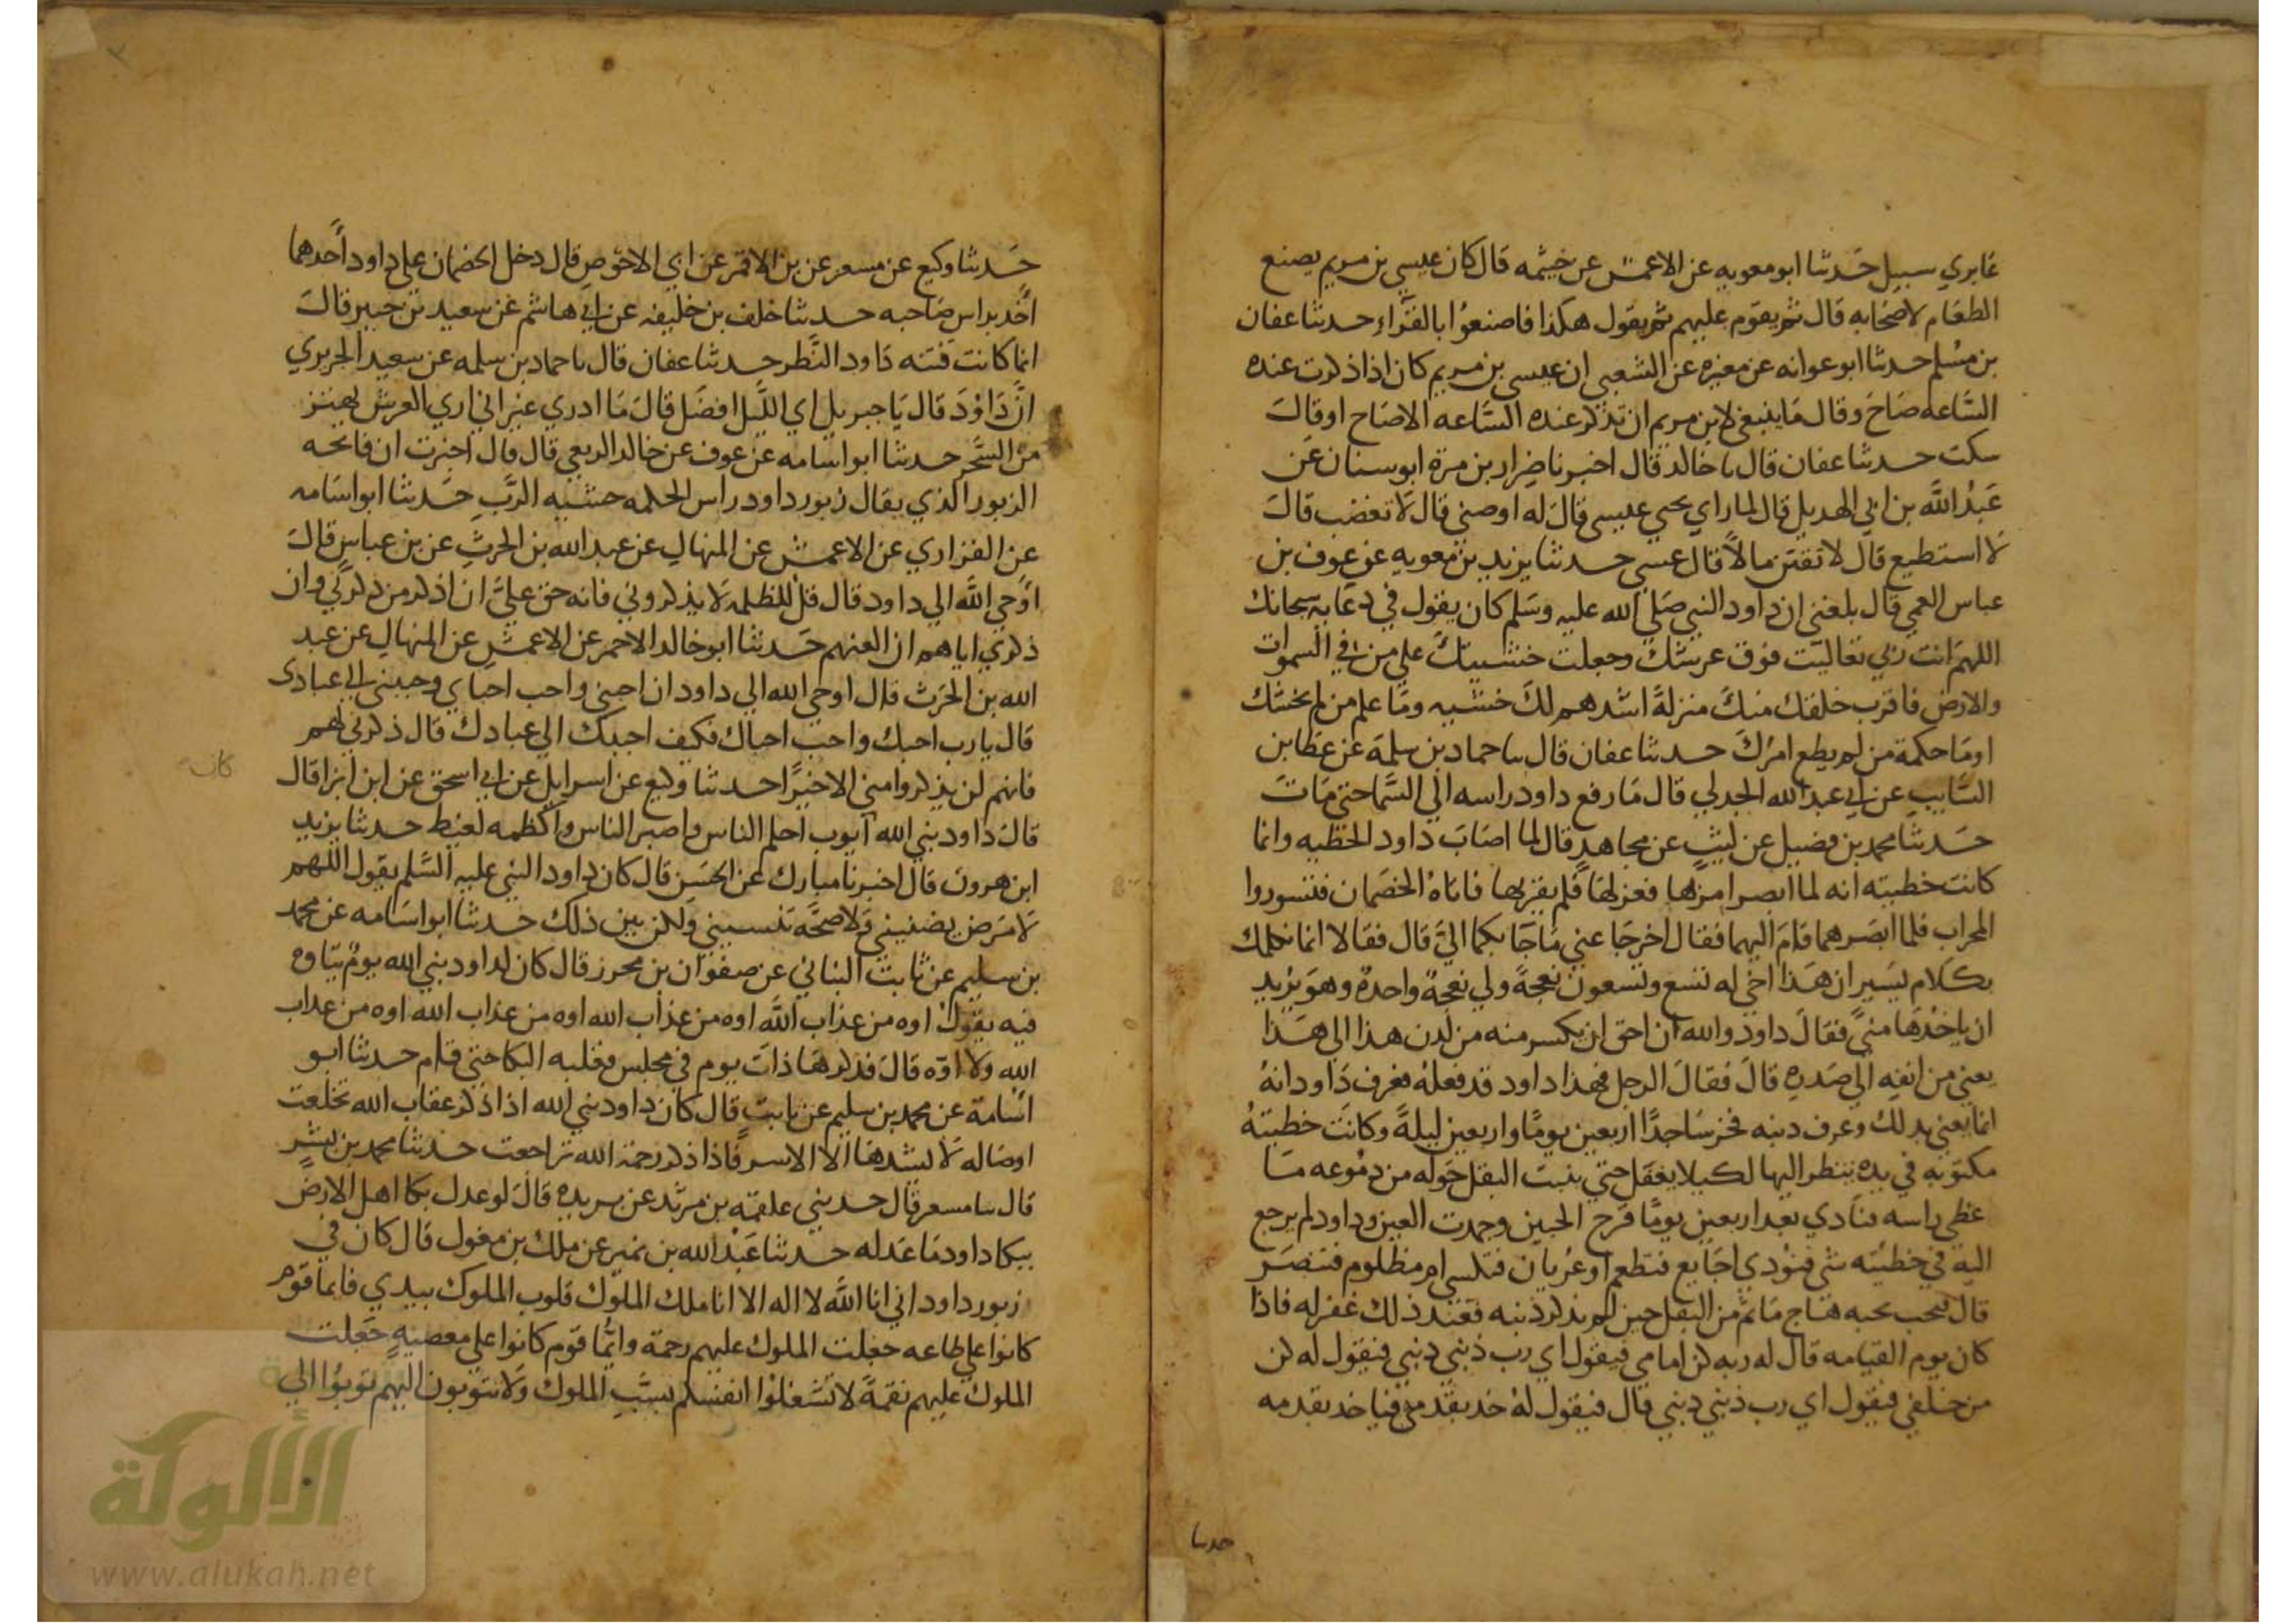 عابري سبيل حدثنا ابو معويه عن الاعمش عن خيثمه قال كان عيسي بن مريم يصنع
الطعام لاصحابه قال ثم يقوم عليهم ثم يقول هكذا فاصنعوا بالقراء حدثنا عفان
بن مسلم حدثنا ابو عوانه عن مغيره عن الشعبي ان عيسى بن مريم كان اذا ذكرت عنده
الساعه صاح وقال ما ينبغي لابن مريم ان تذكر عنده الساعه الا صاح او قال
سكت حدثنا عفان قال نا خالد قال اخبرنا ضرار بن مرة ابو سنان عن
عبد الله بن ابي الهديل قال لما راي يحيي عيسى قال له اوصني قال لا تغضب قال
لا استطيع قال لا تقتن مالا قال عسي حدثنا يزيد بن معويه عن عوف بن
عباس العمي قال بلغني ان داود النبي صلى الله عليه وسلم كان يقول في دعايه سبحانك
اللهم انت ربي تعاليت فوق عرشك وجعلت خشيتك علي من في السموات
والارض فاقرب خلقك منك منزلة اشدهم لك خشيه وما علم من لم يخشك
او ما حكمة من لم يطع امرك حدثنا عفان قال نا حماد بن سلمة عن عطا بن
السايب عن ابي عبد الله الجدلي قال ما رفع داود راسه الي السما حتي مات
حدثنا محمد بن فضيل عن ليث عن مجاهد قال لما اصاب داود الخطيه وانما
كانت خطيته انه لما ابصر امر بها فعزلها فلم يقربها فاتاه الخصمان فتسوروا
المحراب فلما ابصرهما قام اليهما فقال اخرجا عني ما جا بكما الي قال فقالا انما نكلمك
بكلام يسير ان هذا اخي له تسع وتسعون نعجة ولي نعجة واحدة وهو يريد
ان ياخذها مني فقال داود والله ان احق ان يكسر منه من لدن هذا الي هذا
يعني من انفه الي صدره قال فقال الرجل فهذا داود قد فعله فعرف داود انه
انما يعني بدلك وعرف دنبه فخر ساجدا اربعين يوما واربعين ليلة وكانت خطيته
مكتوبه في يده ينظر اليها لكيلا يغفل حتي نبت البقل حوله من دموعه ما
غطي راسه فنادي بعد اربعين يوما قرح الجبين وجمدت العين وداود لم يرجع
اليه في خطيته شي فنودي اجايع فتطعم او عريان فتكسي ام مظلوم فتنصر
قال فنحب نحبه هاج ما ثم من البقل حين لم يذكر ذنبه فعند ذلك غفر له فاذا
كان يوم القيامه قال له ربه كن امامي فيقول اي رب ذنبي ذنبي فيقول له كن
من خلفي فيقول اي رب ذنبي ذنبي قال فيقول له خذ بقدمي فياخذ بقدمه
حدثنا
حدثنا وكيع عن مسعر عن بن الاقمر عن ابي الاحوص قال دخل الخصمان علي داود احدهما
اخد براس صاحبه حدثنا خلف بن خليفه عن ابي هاشم عن سعيد بن جبير قال
انما كانت فتنه داود النظر حدثنا عفان قال نا حماد بن سلمه عن سعيد الجريري
ان داود قال يا جبريل اي الليل افضل قال ما ادري غير اني اري العرش يهتز
من السحر حدثنا ابو اسامه عن عوف عن خالد الربعي قال قال اخبرت ان فاتحه
الزبور الذي يقال زبور داود راس الحكمه خشيه الرب حدثنا ابو اسامه
عن الفزاري عن الاعمش عن المنهال عن عبد الله بن الحرث عن بن عباس قال
اوحي الله الي داود قال قل للظلمه لا يذكروني فانه حق علي ان اذكر من ذكرني وان
ذكري اياهم ان العنهم حدثنا ابو خالد الاحمر عن الاعمش عن المنهال عن عبد
الله بن الحرث قال اوحي الله الي داود ان احبني واحب احباي وحببني الي عبادى
قال يا رب احبك واحب احباك فكيف احببك الي عبادك قال ذكرني لهم
فانهم لن يذكروا مني الا خيرا حدثنا وكيع عن اسرايل عن ابي اسحق عن ابن ابزا قال
كان
قال داود نبي الله ايوب احلم الناس واصبر الناس واكظمه لغيظ حدثنا يزيد
ابن هرون قال اخبرنا مبارك عن الحسن قال كان داود النبي عليه السلم يقول اللهم
لا مرض يضنيني ولا صحة تنسيني ولكن بين ذلك حدثنا ابو اسامه عن محمد
بن سليم عن ثابت البناني عن صفوان بن محرز قال كان لداود نبي الله يوم يتاوه
فيه يقول اوه من عذاب الله اوه من عذاب الله اوه من عذاب الله اوه من عذاب
الله ولا اوه قال فذكرها ذات يوم في مجلس فغلبه البكا حتي قام حدثنا ابو
اسامة عن محمد بن سليم عن ثابت قال كان داود نبي الله اذا ذكر عقاب الله تخلعت
اوصاله لا يشدها الا الاسر فاذا ذكر رحمة الله تراجعت حدثنا محمد بن بشر
قال نا مسعر قال حدثني علقمه بن مرثد عن بريده قال لو عدل بكا اهل الارض
ببكا داود ما عدله حدثنا عبد الله بن نمير عن ملك بن مغول قال كان في
زبور داود اني انا الله لا اله الا انا ملك الملوك قلوب الملوك بيدي فايما قوم
كانوا علي طاعه جعلت الملوك عليهم رحمة وايما قوم كانوا علي معصيه جعلت
الملوك عليهم نقمة لا تشغلوا انفسكم بسبب الملوك ولا تتوبون اليهم توبوا الي
الألوكة
www.alukah.net